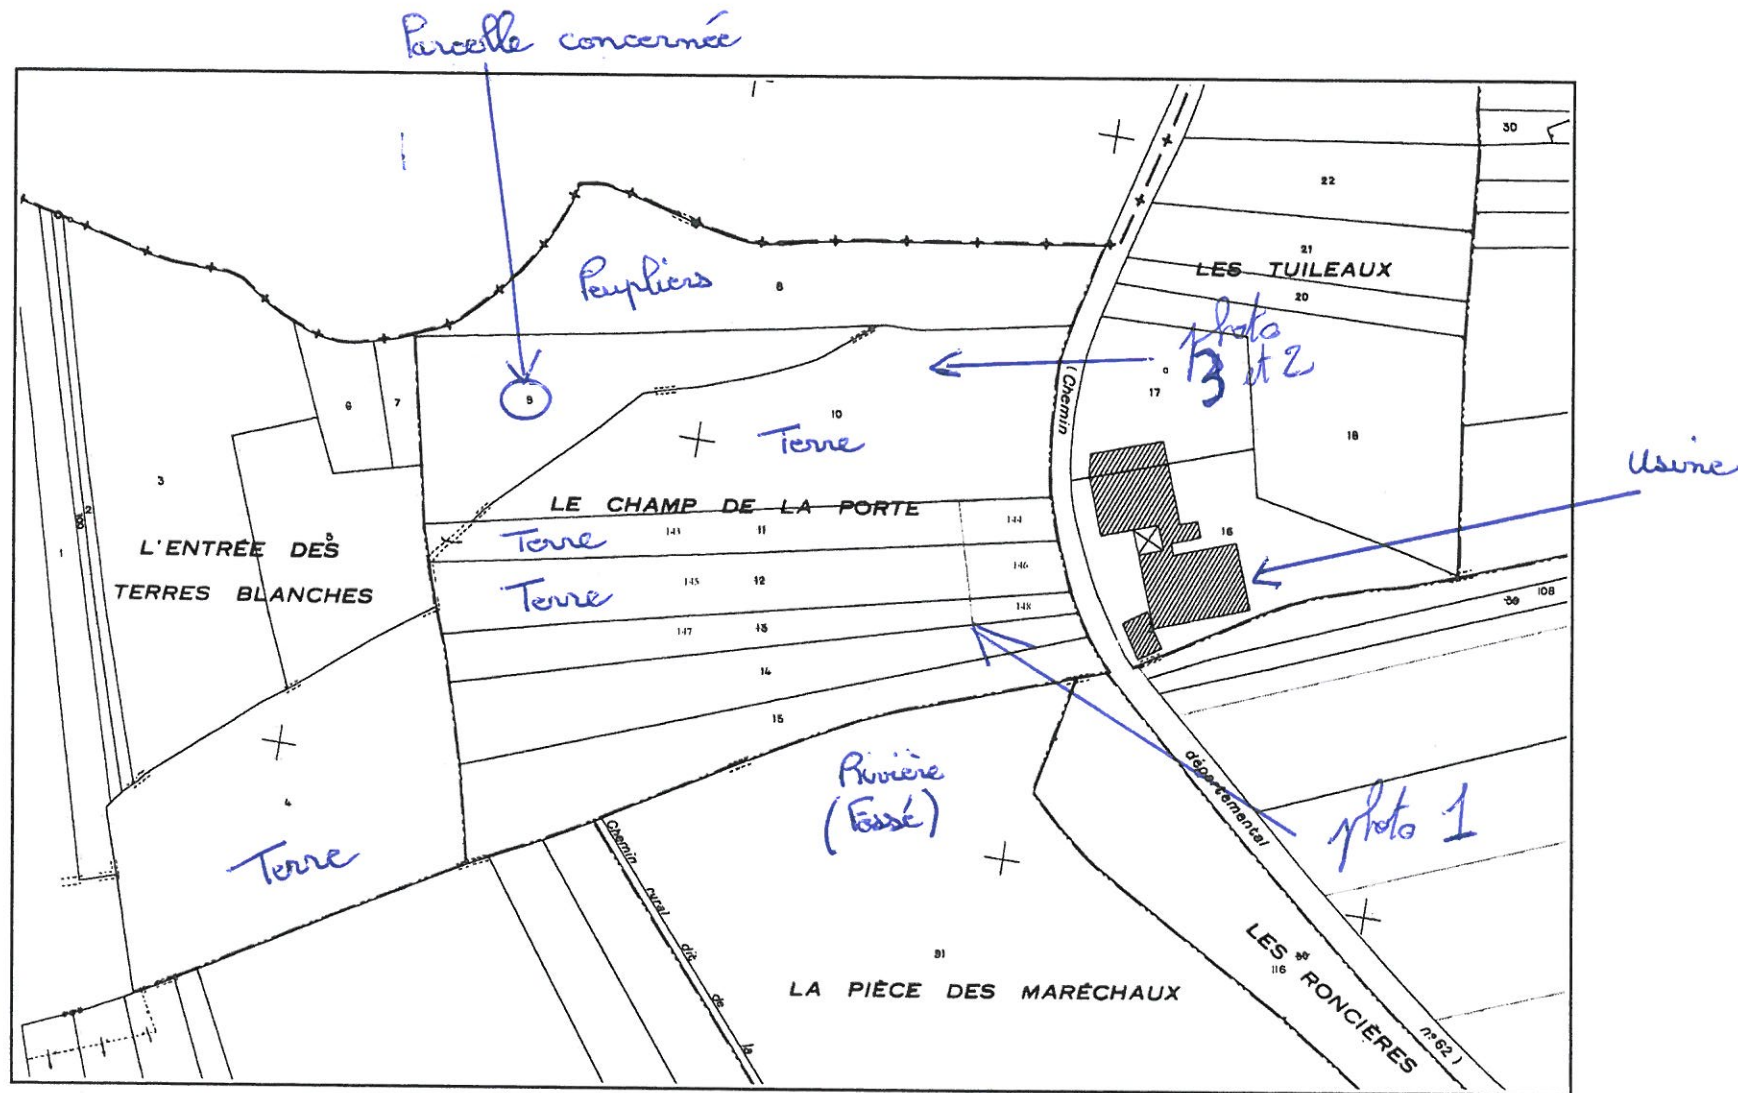 Parcelle concernée
30
22
21
LES TUILEAUX
20
Peupliers
8
photo
3 et 2
9
6
7
10
Terre
17
18
(Chemin
Usine
3
2
1
LE CHAMP DE LA PORTE
143
11
144
16
L'ENTRÉE DES
TERRES BLANCHES
5
Terre
145
12
146
Terre
148
108
147
13
14
15
Rivière
(Fossé)
départemental
photo 1
4
Terre
Chemin rural dit de la
91
LA PIÈCE DES MARÉCHAUX
LES RONCIÈRES
116
n° 62)